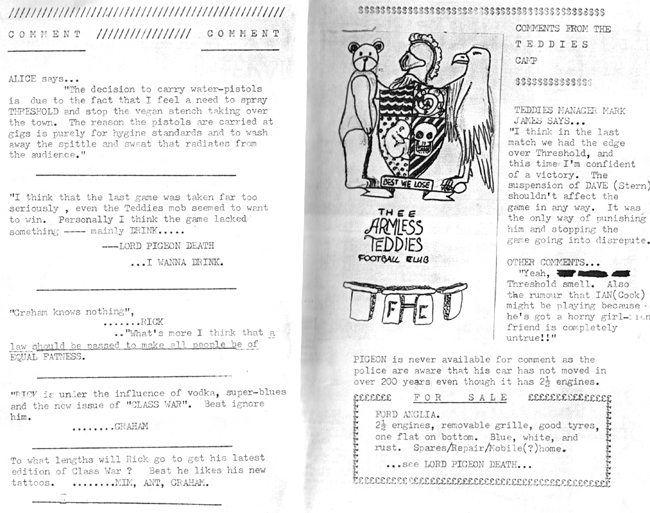 COMMENT //////////////// COMMENT
ALICE says...
"The decision to carry water-pistols
is due to the fact that I feel a need to spray
THRESHOLD and stop the vegan stench taking over
the town. The reason the pistols are carried at
gigs is purely for hygine standards and to wash
away the spittle and sweat that radiates from
the audience."
"I think that the last game was taken far too
seriously , even the Teddies mob seemed to want
to win. Personally I think the game lacked
something ---- mainly DRINK.....
---LORD PIGEON DEATH
...I WANNA DRINK.
"Graham knows nothing",
.......RICK
.."What's more I think that a
law should be passed to make all people be of
EQUAL FATNESS.
"RICK is under the influence of vodka, super-blues
and the new issue of "CLASS WAR". Best ignore
him.
........GRAHAM
To what lengths will Rick go to get his latest
edition of Class War ? Best he likes his new
tattoos. ........MIM, ANT, GRAHAM.
BEST WE LOSE
THEE
ARMLESS
TEDDIES
FOOTBALL CLUB
F H C
COMMENTS FROM THE
TEDDIES
CAMP
TEDDIES MANAGER MARK
JAMES SAYS...
"I think in the last
match we had the edge
over Threshold, and
this time I'm confident
of a victory. The
suspension of DAVE (Stern)
shouldn't affect the
game in any way. It was
the only way of punishing
him and stopping the
game going into disrepute.
OTHER COMMENTS...
"Yeah,
Threshold smell. Also
the rumour that IAN(Cook)
might be playing because
he's got a horny girl-
friend is completely
untrue!!"
PIGEON is never available for comment as the
police are aware that his car has not moved in
over 200 years even though it has 2½ engines.
£££££££ FOR SALE £££££££££££
FORD ANGLIA.
2½ engines, removable grille, good tyres,
one flat on bottom. Blue, white, and
rust. Spares/Repair/Mobile(?)home.
...see LORD PIGEON DEATH...